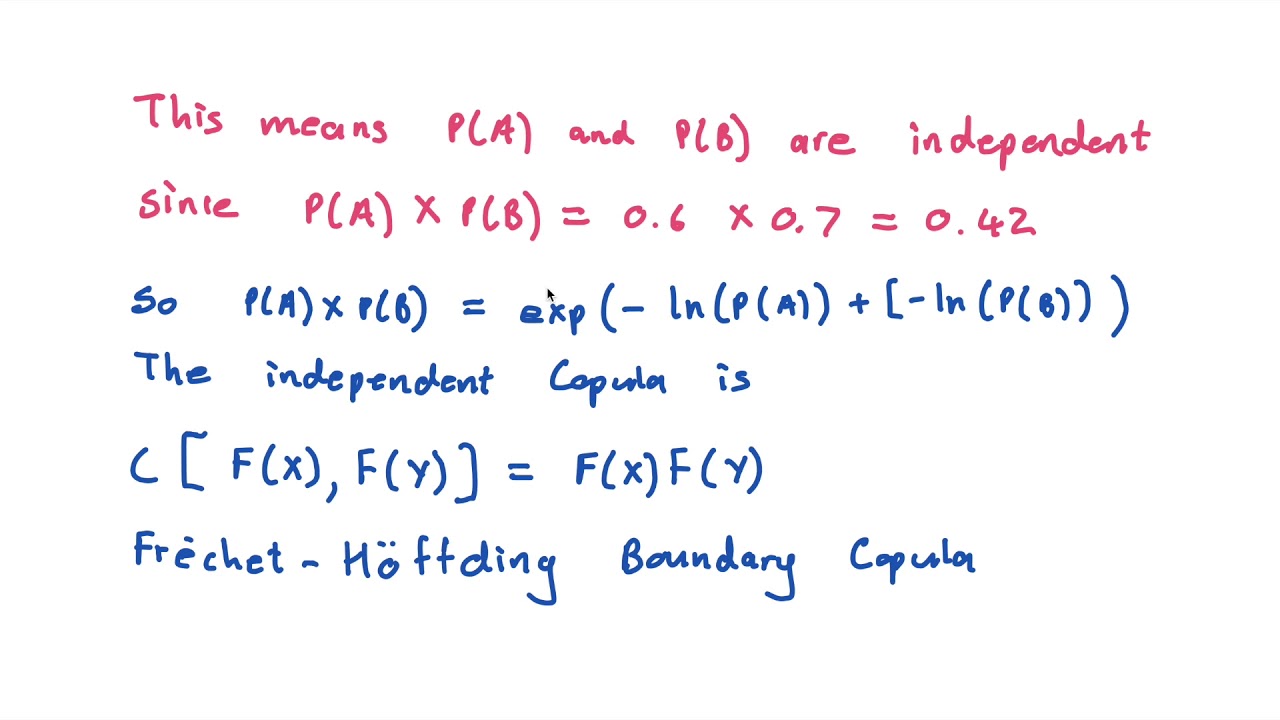 This means P(A) and P(B) are independent
since P(A) X P(B) = 0.6 X 0.7 = 0.42
So P(A) x P(B) = exp(- ln(P(A)) + [-ln(P(B)) )
The independent Copula is
C [ F(X), F(Y) ] = F(X)F(Y)
Frėchet - Höffding Boundary Copula